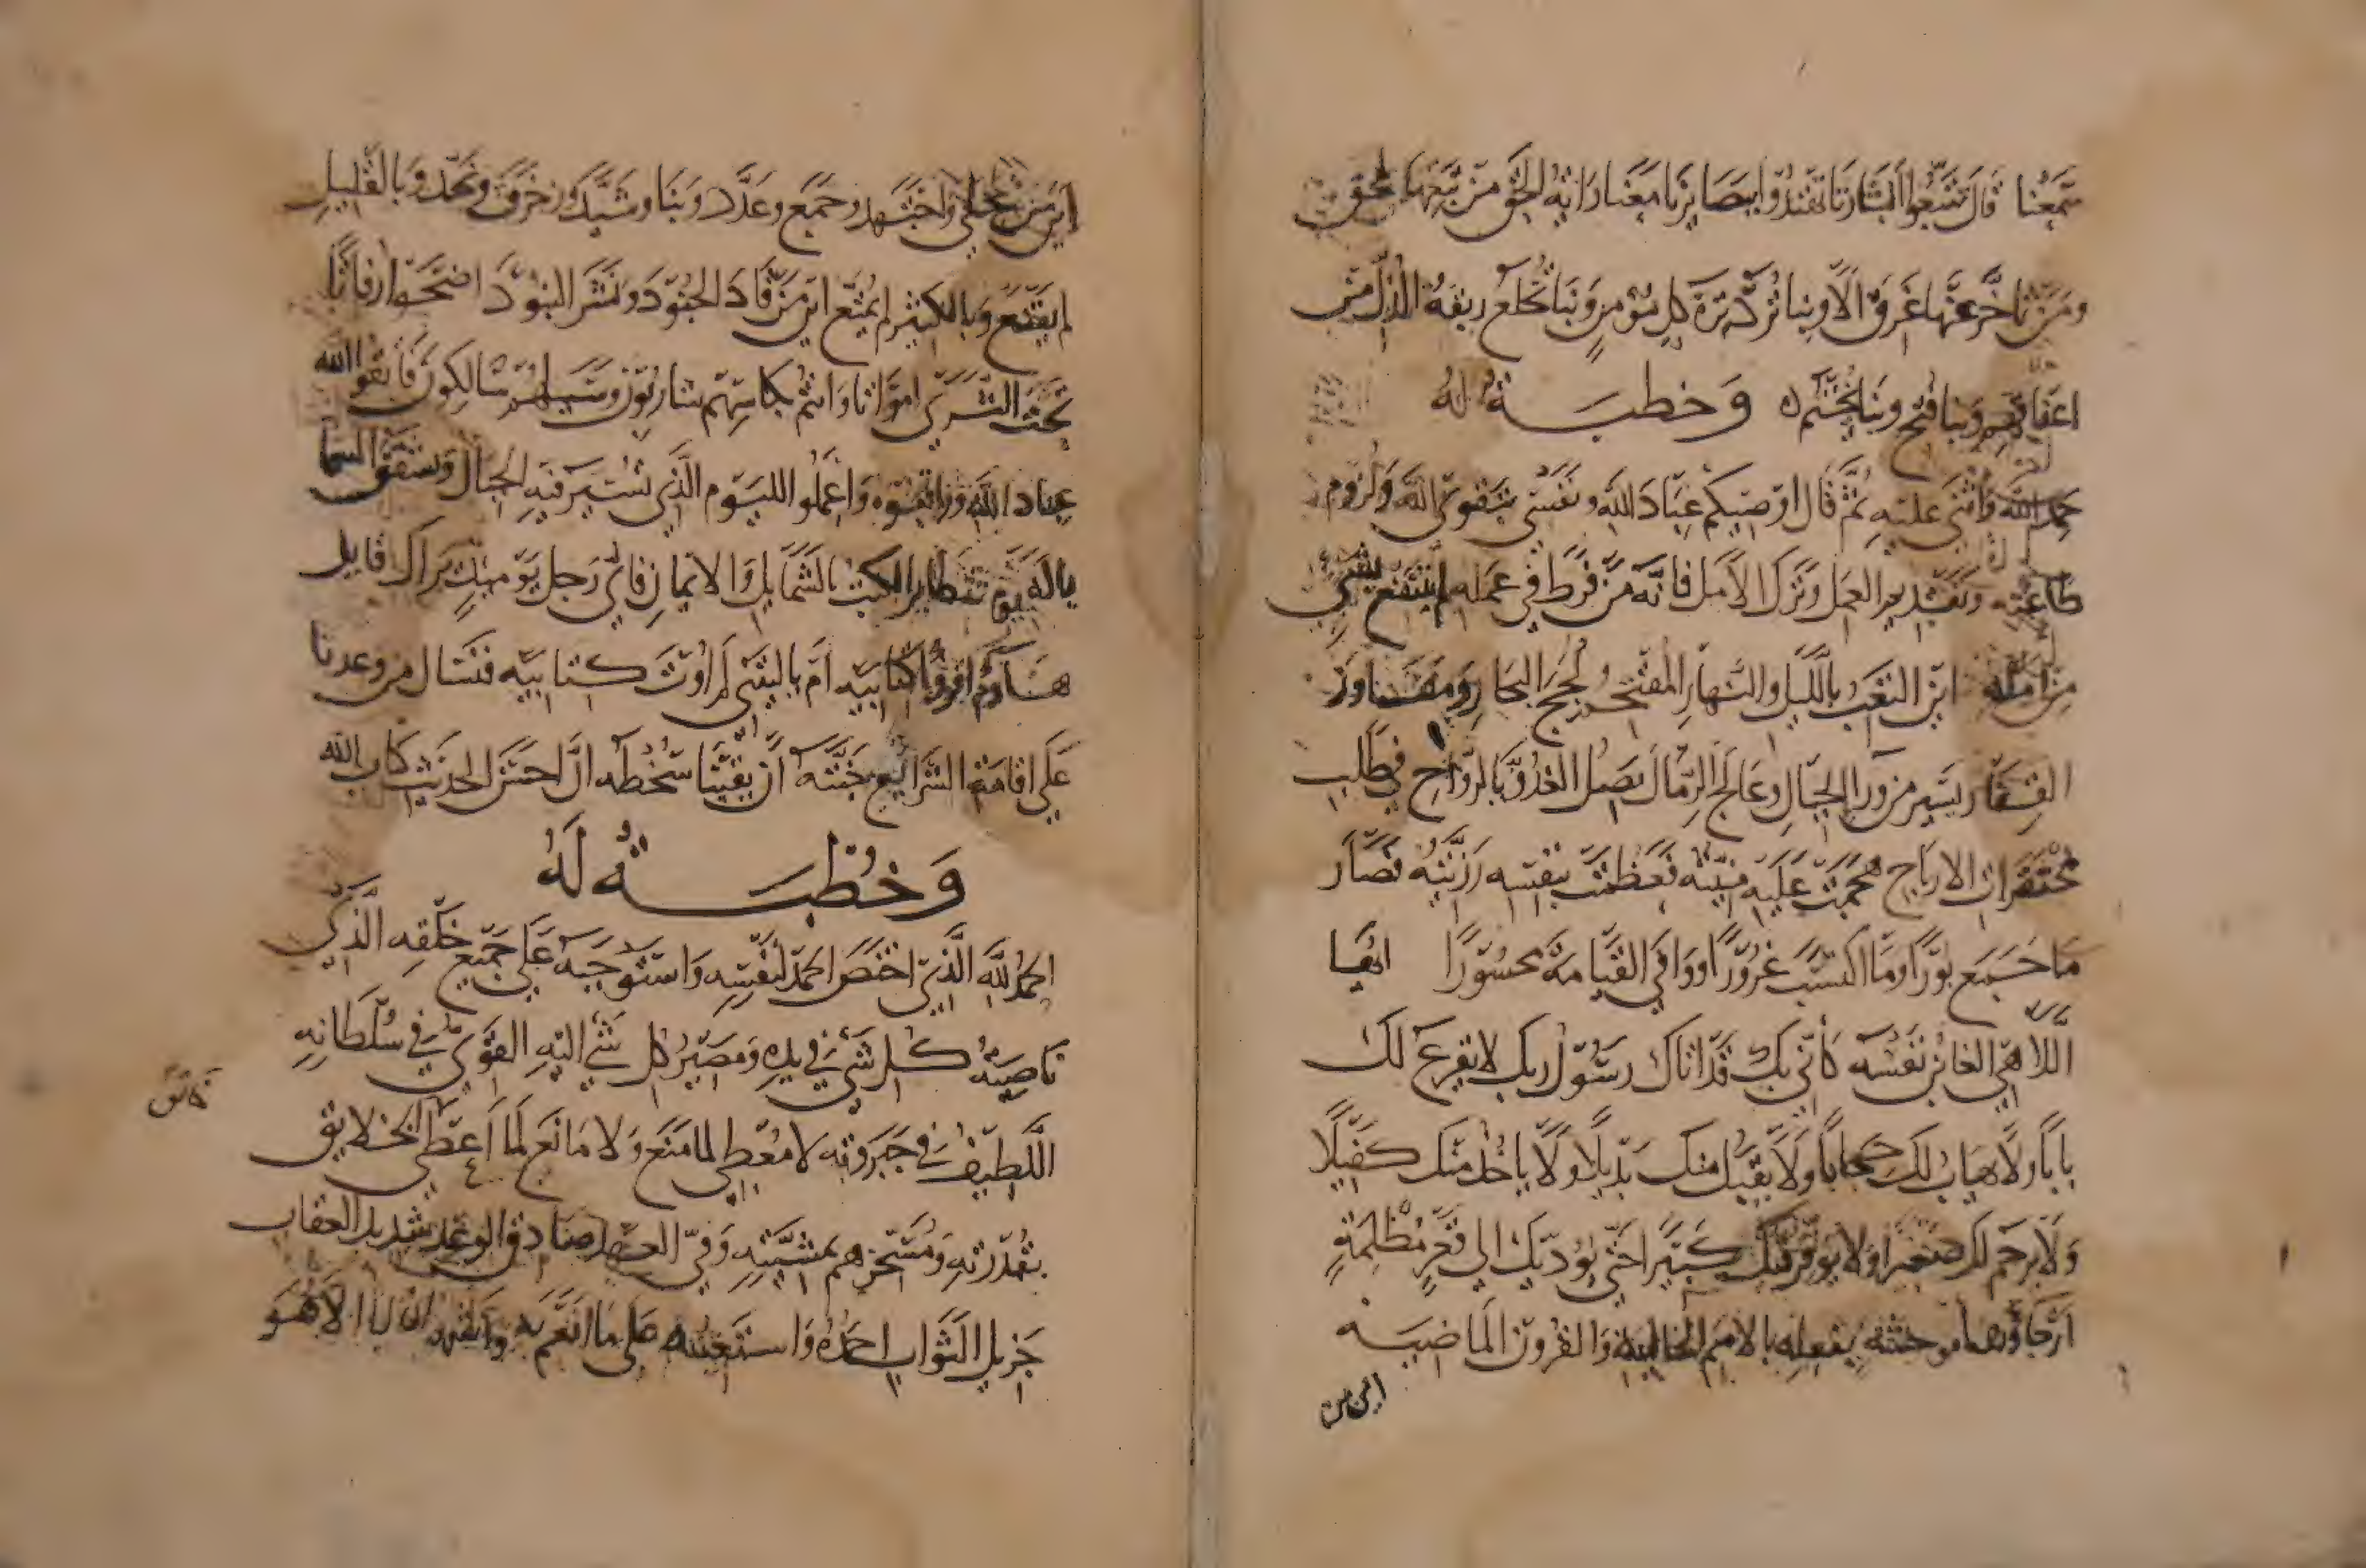 سمعنا قال تتبعوا اثارنا تهتدوا ببصائرنا معنا راية الحق من تبعها لحق
ومن تاخر عنها غرق الا وبنا ترد ترة كل مؤمن وبنا تخلع ربقة الذل من
اعناقكم وبنا فتح وبنا يختم وخطبة له
حمد الله واثنى عليه ثم قال اوصيكم عباد الله ونفسي بتقوى الله ولزوم
طاعته وتقديم العمل وترك الامل فانه من فرط في عمله لم ينتفع بشيء
من امله اين التعب بالليل والنهار المقتحم للجج البحار ومفاوز
القفار يسير من وراء الجبال وعالج الرمال يصل الغدو بالرواح في طلب
محقرات الارباح هجمت عليه منيته فعظمت بنفسه رزيته فصار
ما جمع بورا وما اكتسب غرورا ووافى القيامة محسورا ايها
اللاهي الغار نفسه كاني بك قد اتاك رسول ربك لا يقرع لك
بابا ولا يهاب لك حجابا ولا يقبل منك بديلا ولا ياخذ منك كفيلا
ولا يرحم لك صغيرا ولا يوقر فيك كبيرا حتى يؤديك الى قعر مظلمة
ارجاؤها موحشة كفعله بالامم الخالية والقرون الماضية
اين من
اين من سعى واجتهد وجمع وعدد وبنا وشيد وزخرف ونجد وبالقليل
لم يقنع وبالكثير لم يمتع اين من قاد الجنود ونشر البنود اضحوا رفاتا
تحت الثرى امواتا وانتم بكاسهم شاربون ولسبيلهم سالكون فاتقوا الله
عباد الله وراقبوه واعملوا لليوم الذي تسير فيه الجبال وتشقق السما
ياله يوم تتطاير الكتب بالشمايل والايمان فاي رجل يومئذ تراك قايل
هاؤم اقرؤا كتابيه ام ياليتني لم اوت كتابيه فنسال من وعدنا
على اقامة الشرائع جنته ان يقينا سخطه ان احسن الحديث كتاب الله
وخطبة له
الحمد لله الذي اختص الحمد لنفسه واستوجبه على جميع خلقه الذي
ناصية كل شيء في يده ومصير كل شيء اليه القوي في سلطانه
اللطيف في جبروته لا معطي لما منع ولا مانع لما اعطى الخلايق
بقدرته ومسخرهم بمشيته وفي العهد صادق الوعد شديد العقاب
جزيل الثواب احمده واستعينه على ما انعم به